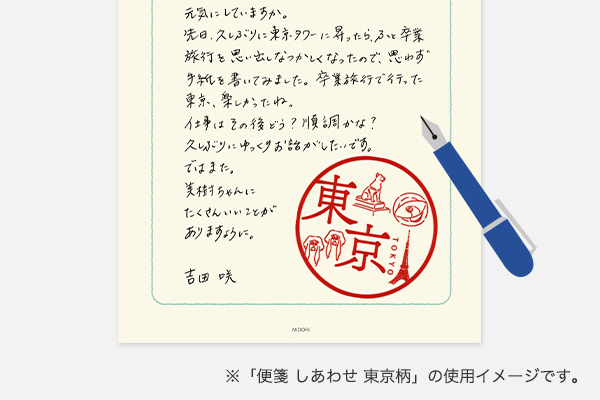 元気にしていますか。
先日、久しぶりに東京タワーに昇ったら、ふと卒業
旅行を思い出しなつかしくなったので、思わず
手紙を書いてみました。卒業旅行で行った
東京、楽しかったね。
仕事はその後どう？順調かな？
久しぶりにゆっくりお話がしたいです。
ではまた。
美樹ちゃんに
たくさんいいことが
ありますように。
吉田 咲
東京
TOKYO
MIDORI
※「便箋 しあわせ 東京柄」の使用イメージです。